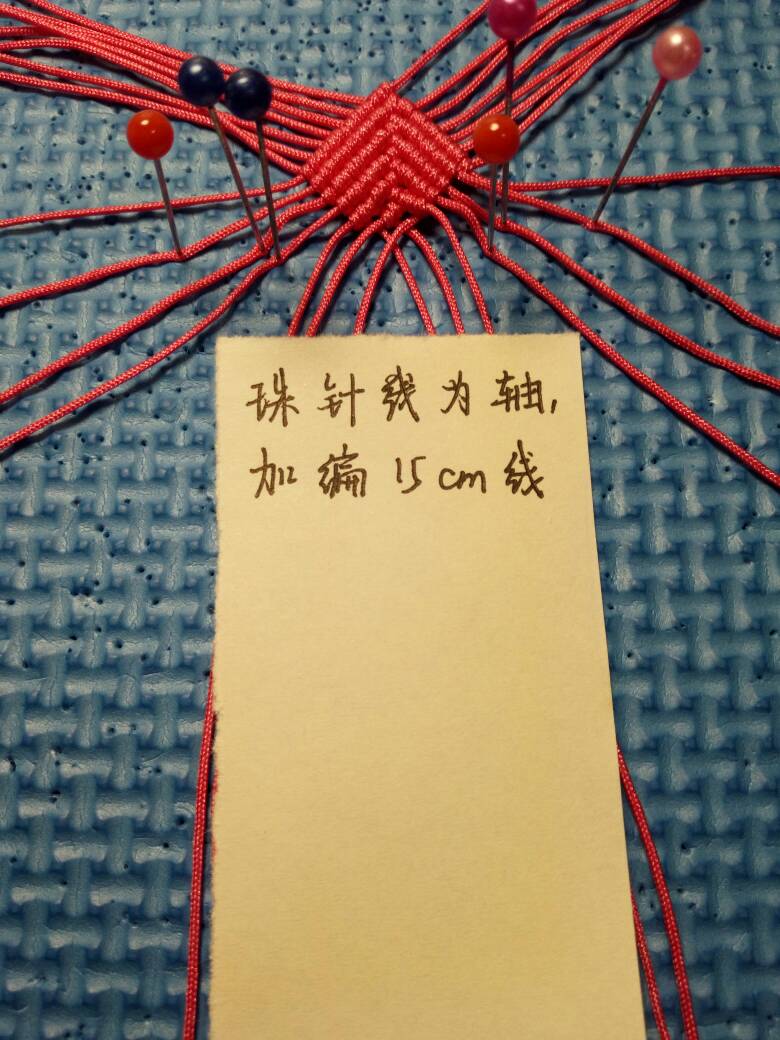 珠针线为轴,
加编15cm线